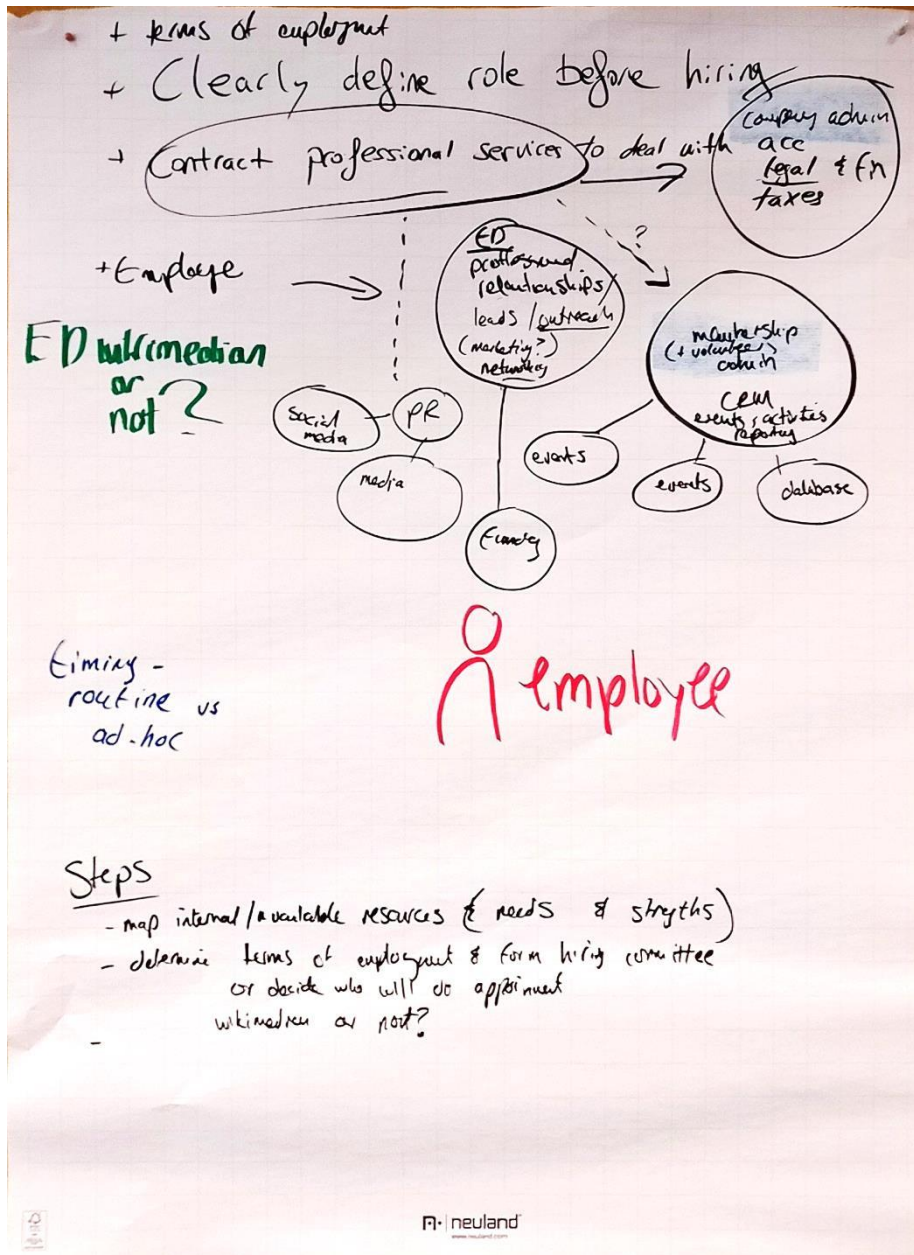 + terms of employment
+ Clearly define role before hiring
+ Contract professional services to deal with
company admin
acc
legal & fin
taxes
?
+ Employee
ED
professional
relationships
leads / outreach
(marketing?)
networking
membership
(+ volunteers)
admin
CRM
events, activities
reporting
ED wikimedian
or
not?
social
media
PR
media
events
events
database
Funding
timing -
routine vs
ad-hoc
employee
Steps
- map internal/available resources (needs & strengths)
- determine terms of employment & form hiring committee
or decide who will do appointment
wikimedian or not?
-
neuland
www.neuland.com